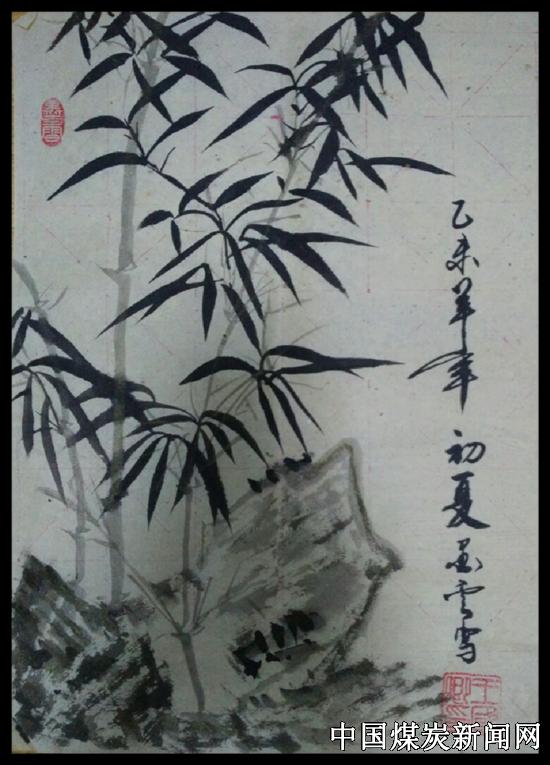 乙未羊年初夏墨云写
中国煤炭新闻网